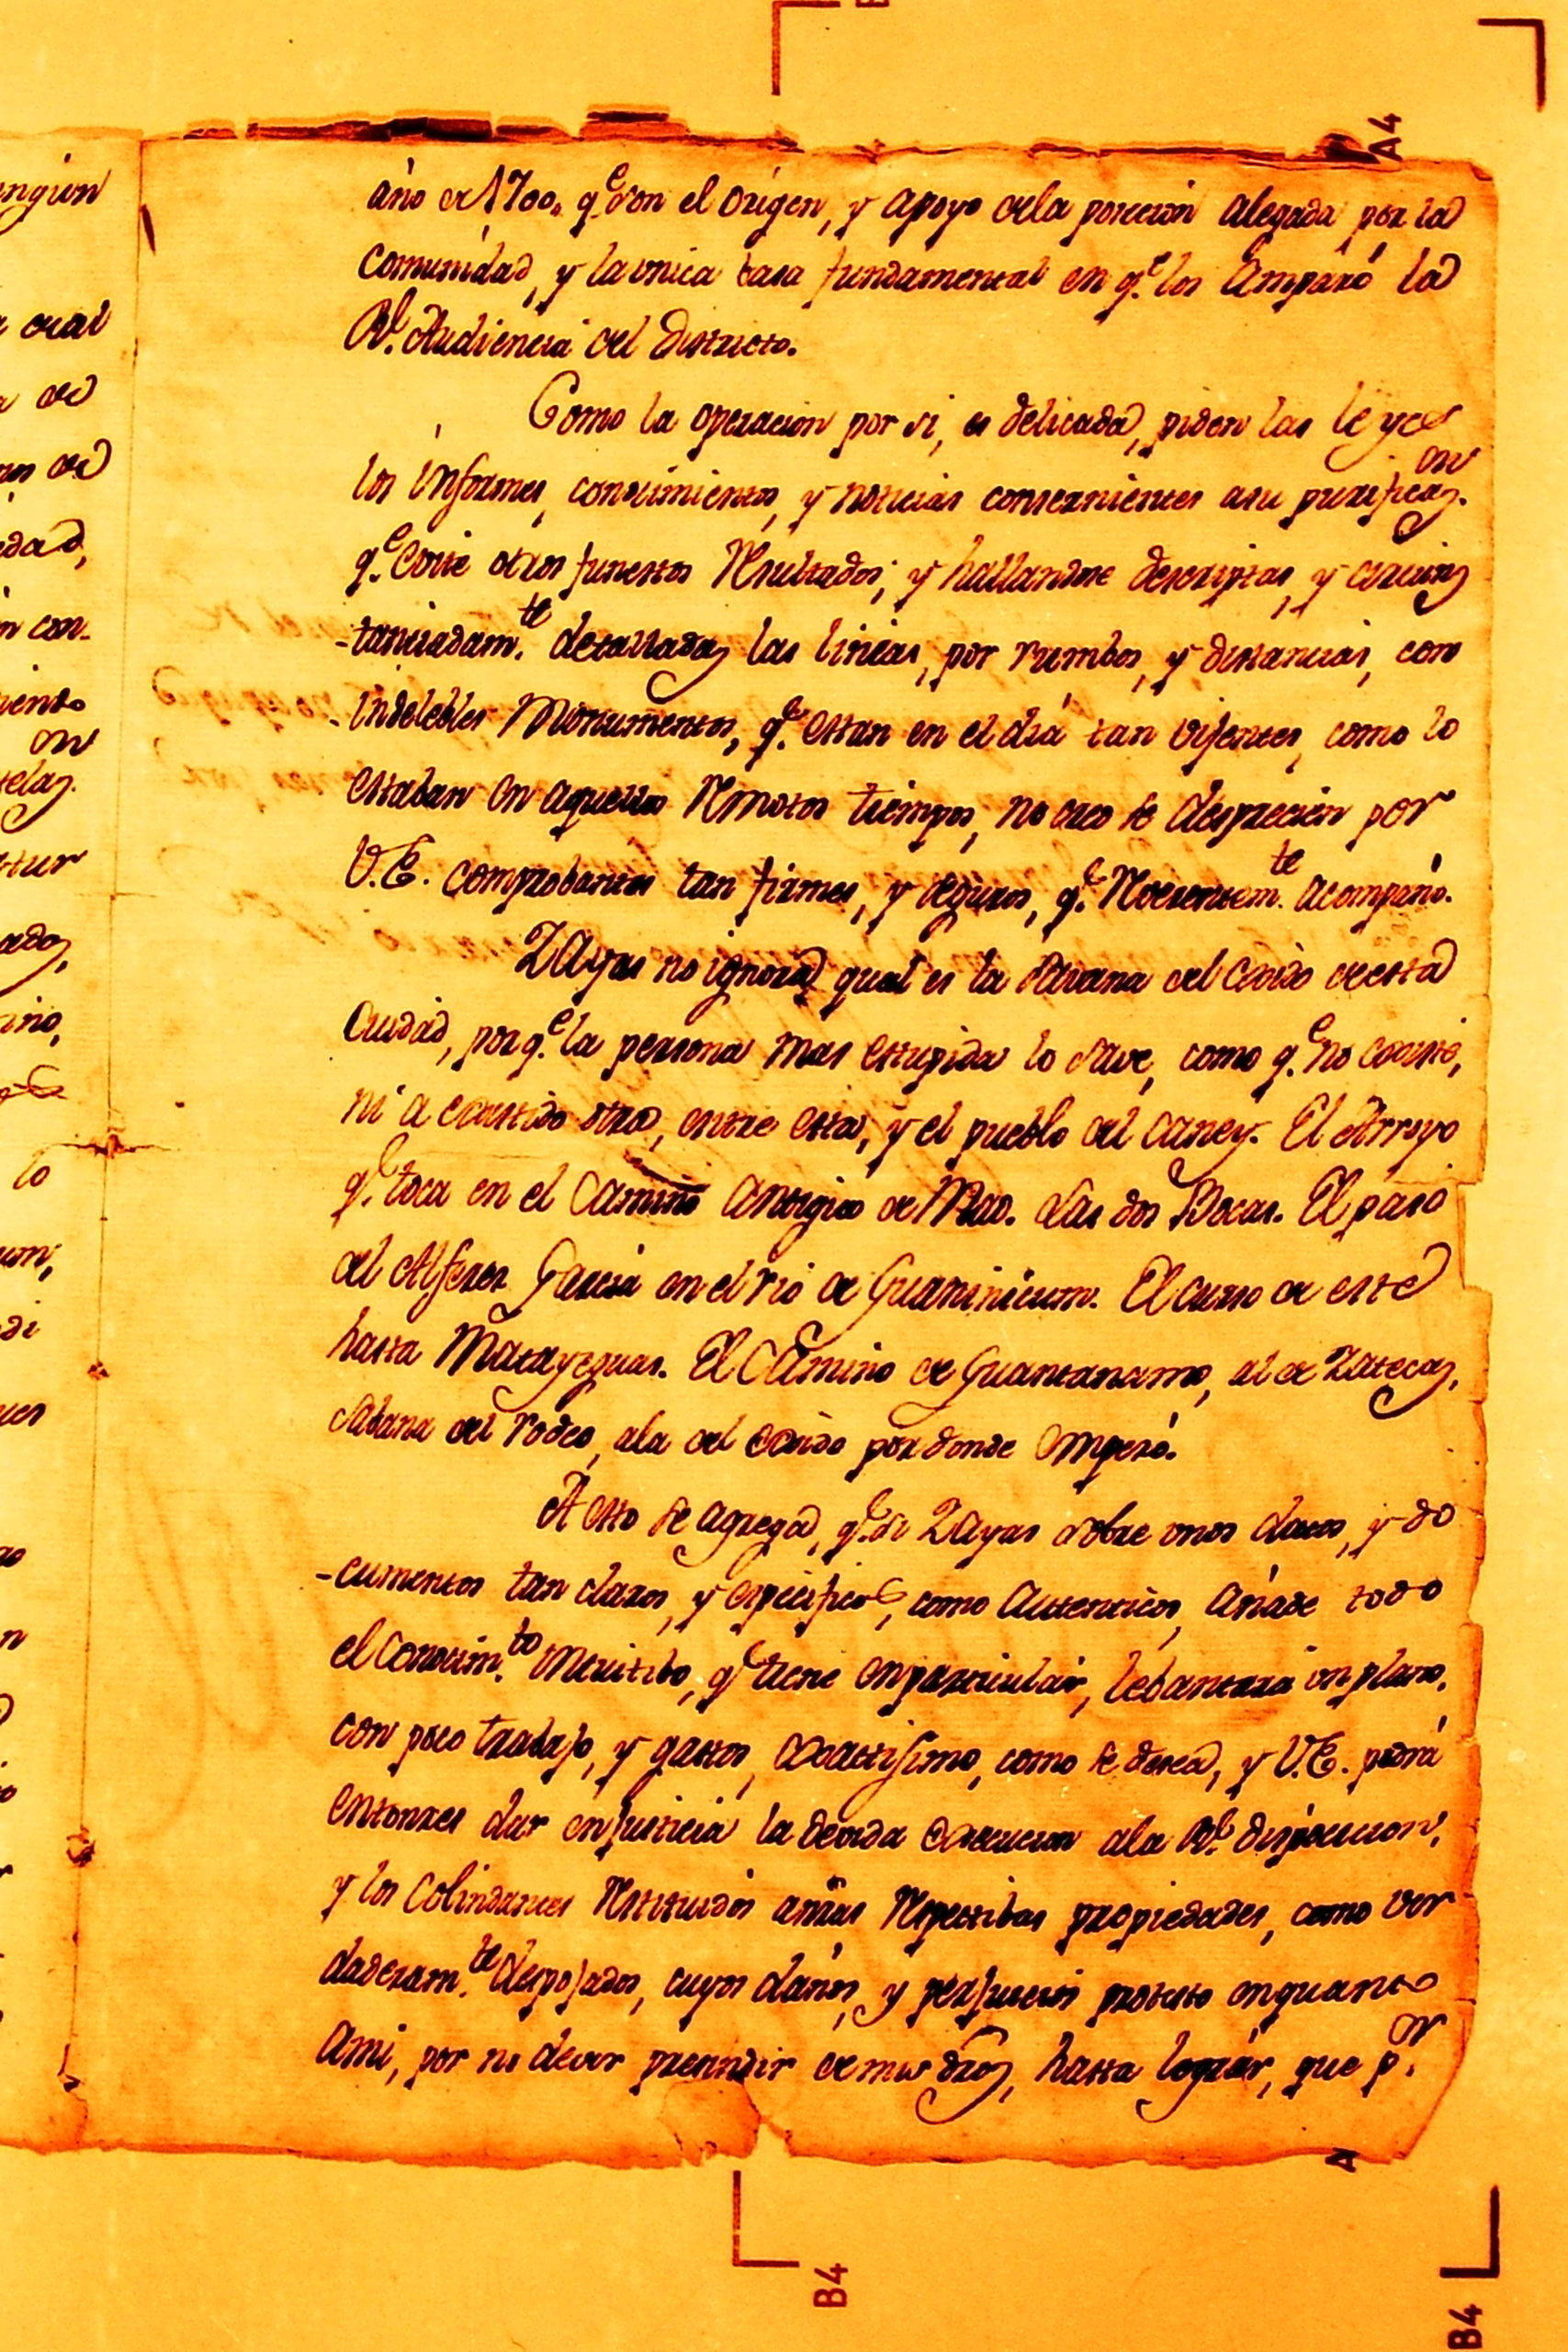 año de 1700. q.e son el origen, y apoyo dela posecion alegada por la
comunidad, y la unica basa fundamental en q.e los Amparó la
R.l Audiencia del Districto.
Como la operacion por si, es delicada, piden las leyes
los informes, conosimientos, y noticias consernientes asu purificaz.on
q.e evite otros funestos Resultados; y hallandose descriptas, y circuns
-tanciadam.te detalladas las lineas, por rumbos, y distancias, con
indelebles Monumentos, q.e estan en el dia tan vijentes, como lo
estaban en aquellos Remotos tiempos, no creo se desprecien por
V.E. comprobantes tan firmes, y seguros, q.e Reverentem.te acompaño.
Zayas no ignora qual es la Savana del Covido de esta
Ciudad, porq.e la persona mas estupida lo save, como q.e no existe,
ni a existido otra, entre esta, y el pueblo del Caney. El Arroyo
q.e toca en el Camino Antiguo de Mao. Las dos Bocas. El paso
del Alferes Garcia en el rio de Guaninicum. El curso de este
hasta Matayeguas. El Camino de Guantanamo, al de Zatecas,
Sabana del rodeo, ala del Covido por donde empesó.
A esto se agrega, q.e si Zayas sobre unos datos, y do
-cumentos tan claros, y especificos, como Autenticos, añade todo
el conosim.to q.e tiene en particular, lebantará un plano,
con poco trabajo, y gastos, exactisimo, como se desea, y V.E. podrá
entonces dar en justicia la devida execucion ala R.l disposicion,
y los Colindantes Restituidos a nras Respectibas propiedades, como ver
daderam.te despojados, cuyos daños, y perjuicios protesto en quanto
Ami, por no dever presindir de mis dros, hasta lográr, que p.r
A4
A
B4
B4